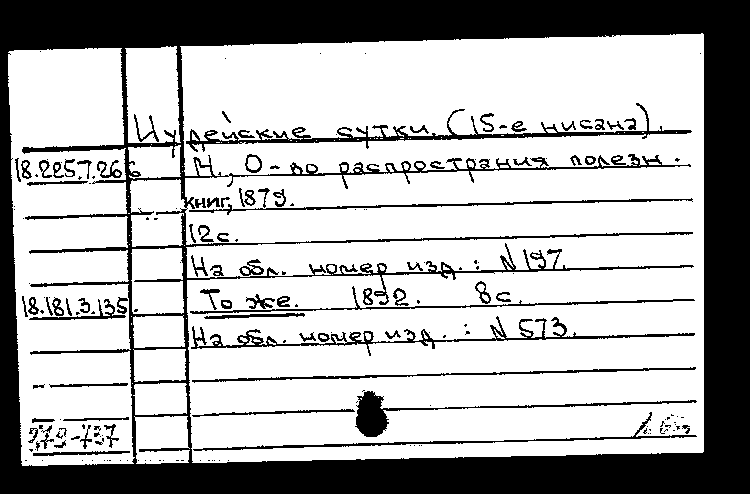 Иудейские сутки. (15-е нисана).
18.225.7.266 М., О-во распространия полезн.
книг, 1879.
12с.
На обл. номер изд.: N 197.
18.181.3.135. То же. 1892. 8с.
На обл. номер изд.: N 573.
279-737